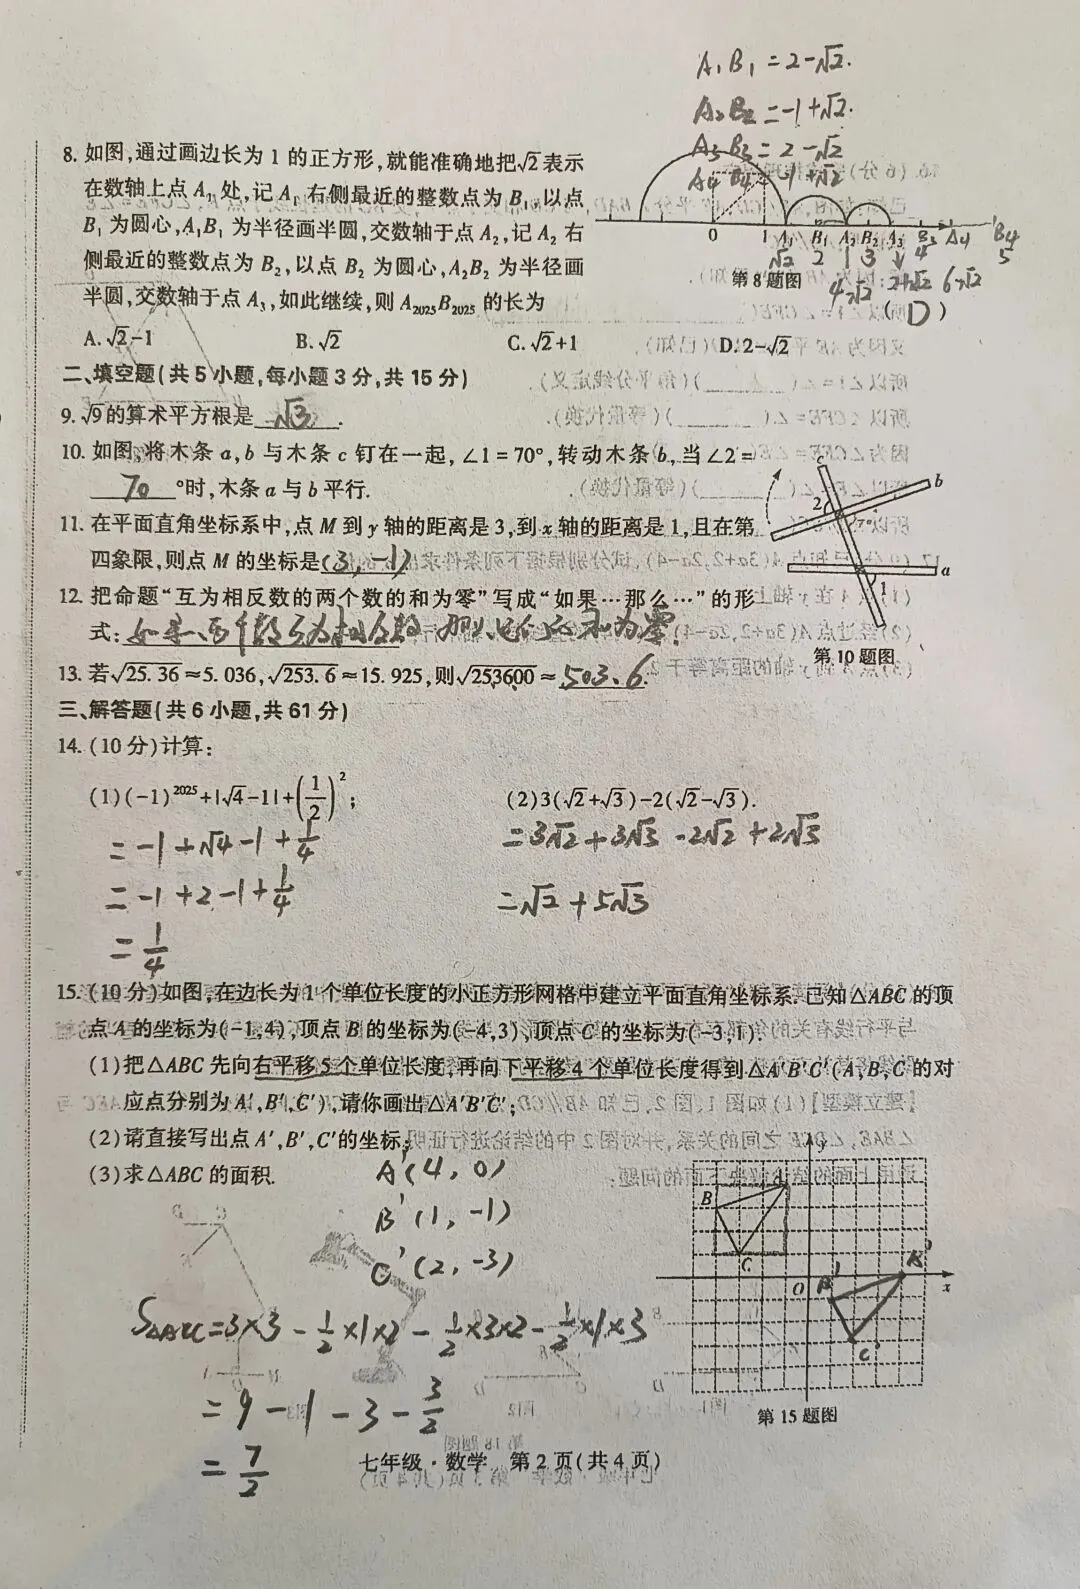 A₁B₁=2-√2.
A₂B₂=-1+√2.
A₃B₃=2-√2
A₄B₄=-1+√2
8. 如图,通过画边长为 1 的正方形,就能准确地把√2表示
在数轴上点 A₁ 处,记 A₁ 右侧最近的整数点为 B₁,以点
B₁ 为圆心,A₁B₁ 为半径画半圆,交数轴于点 A₂,记 A₂ 右
侧最近的整数点为 B₂,以点 B₂ 为圆心,A₂B₂ 为半径画
半圆,交数轴于点 A₃,如此继续,则 A₂₀₂₅B₂₀₂₅ 的长为
0 1 A₁ B₁ A₂ B₂ A₃ B₃ A₄ B₄
√2 2 3 4 5
4-√2 2+√2 6-√2
第 8 题图
( D )
A. √2-1 B. √2 C. √2+1 D. 2-√2
二、填空题(共 5 小题,每小题 3 分,共 15 分)
9. √9的算术平方根是 √3 .
10. 如图,将木条 a,b 与木条 c 钉在一起,∠1=70°,转动木条 b,当∠2=
70 °时,木条 a 与 b 平行.
11. 在平面直角坐标系中,点 M 到 y 轴的距离是 3,到 x 轴的距离是 1,且在第
四象限,则点 M 的坐标是(3,-1)
12. 把命题“互为相反数的两个数的和为零”写成“如果…那么…”的形
式:如果两个数互为相反数,那么它们的和为零.
c
2
b
a
1
第 10 题图
13. 若√25.36≈5.036,√253.6≈15.925,则√253600≈ 503.6.
三、解答题(共 6 小题,共 61 分)
14. (10 分)计算:
(1)(-1)²⁰²⁵+|√4-1|+(1/2)²; (2)3(√2+√3)-2(√2-√3).
=-1+√4-1+1/4 =3√2+3√3-2√2+2√3
=-1+2-1+1/4 =√2+5√3
=1/4
15. (10 分)如图,在边长为 1 个单位长度的小正方形网格中建立平面直角坐标系.已知△ABC 的顶
点 A 的坐标为(-1,4),顶点 B 的坐标为(-4,3),顶点 C 的坐标为(-3,1).
(1)把△ABC 先向右平移 5 个单位长度,再向下平移 4 个单位长度得到△A′B′C′(A,B,C 的对
应点分别为 A′,B′,C′),请你画出△A′B′C′;
(2)请直接写出点 A′,B′,C′的坐标;
(3)求△ABC 的面积.
A′(4,0)
B′(1,-1)
C′(2,-3)
y
A
B
C
O
x
B′
C′
第 15 题图
S△ABC=3×3-1/2×1×2-1/2×3×2-1/2×1×3
=9-1-3-3/2
=7/2
七年级·数学 第 2 页(共 4 页)